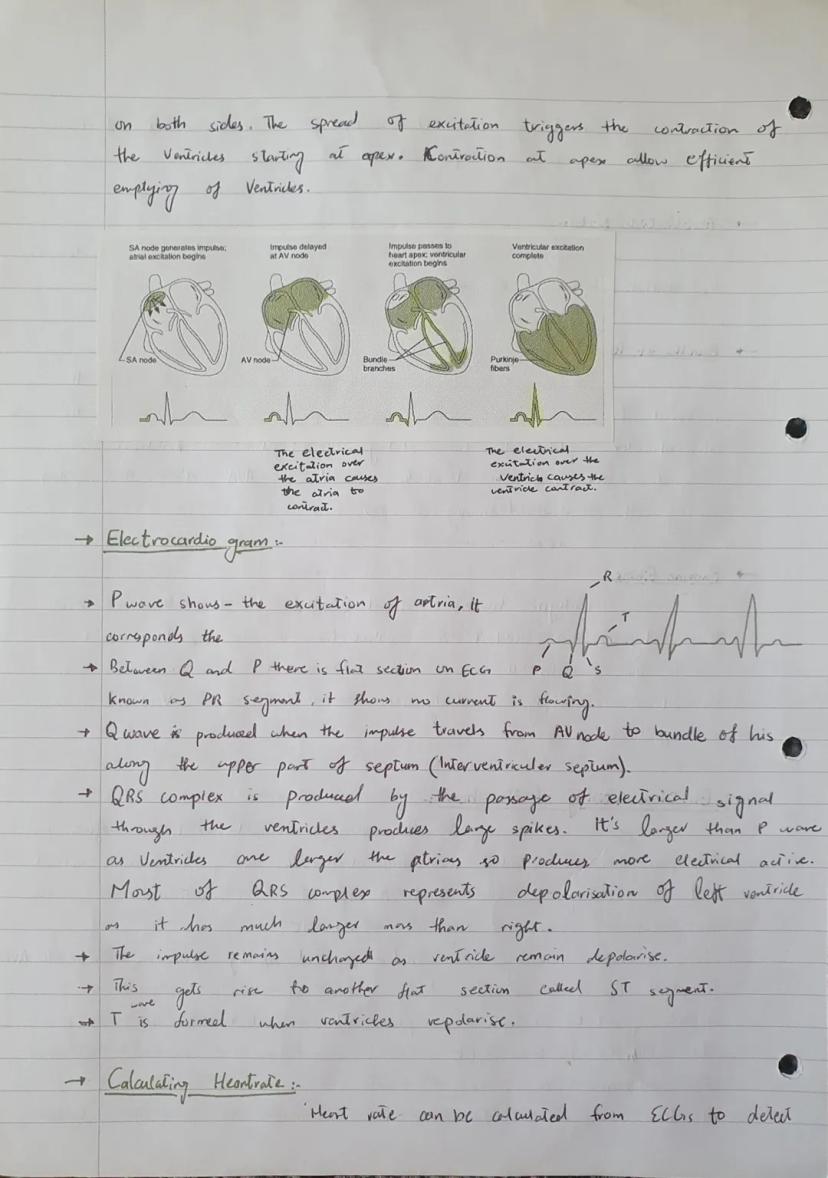 on both sides. The spread of excitation triggers the contraction of
the Ventricles starting at apex. Contraction at apex allow efficient
emplying of Ventricles.
SA node generates impulse;
atrial excitation begins
Impulse delayed
at AV node
Impulse passes to
heart apex; ventricular
excitation begins
Ventricular excitation
complete
SA node
AV node
Bundle
branches
Purkinje
fibers
The electrical
excitation over
the atria causes
the atria to
contract.
The electrical
excitation over the
ventricle causes the
ventricle contract.
→ Electrocardio gram:-
R
T
P Q S
→ P wave shows - the excitation of artria, it
corresponds the
→ Between Q and P there is flat section on ECG
known as PR segment, it shows no current is flowing.
→ Q wave is produced when the impulse travels from AV node to bundle of his
along the upper part of septum (Interventriculer septum).
→ QRS complex is produced by the passage of electrical signal
through the ventricles produces large spikes. It's larger than P wave
as Ventricles are larger the atrias so produces more electrical active.
Most of QRS complex represents depolarisation of left ventricle
as it has much larger mass than right.
→ The impulse remains unchanged as ventricle remain depolarise.
→ This gets rise to another flat section called ST segment.
→ T wave is formed when ventricles repolarise.
→ Calculating Heartrate:-
Heart rate can be calculated from ECGs to detect